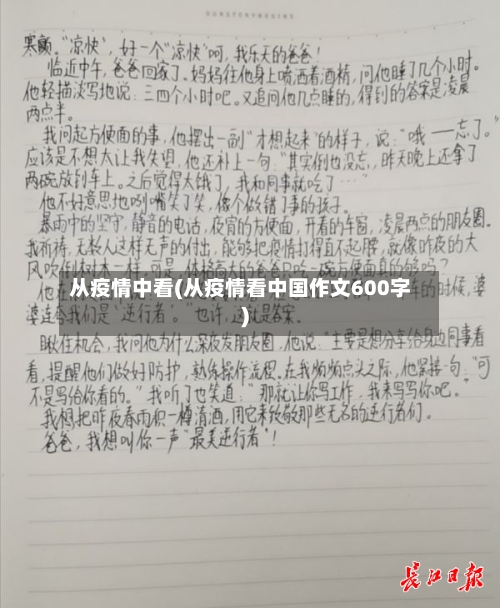 寒颤。“凉快”，好一个“凉快”呵，我乐天的爸爸！
临近中午，爸爸回家了。妈妈往他身上喷洒着酒精，问他睡了几个小时。
他轻描淡写地说：三四个小时吧。又追问他几点睡的，得到的答案是凌晨
两点半。
我问起方便面的事，他摆出一副“才想起来”的样子，说：“哦——忘了。”
应该是不想太让我失望，他还补上一句：“其实倒也没忘，昨天晚上还拿了
两碗放到车上。之后觉得太饿了，我和同事就吃了……”
他不好意思地咧嘴笑了笑，像个做错了事的孩子。
暴雨中的坚守，静音的电话，夜宵的方便面，开着的车窗，凌晨两点的朋友圈。
我祈祷，无数人这样无声的付出，能够把疫情打得直不起腰，就像昨夜的大
风吹倒树木一样。可是，体格高大的爸爸只吃一碗方便面真的够吗？
他在 车的时候，婆
从疫情中看(从疫情看中国作文600字
)
婆连会我们是“逆行者”。”也许，这就是答案。
瞅住机会，我问他为什么深夜发朋友圈，他说：“主要是想分享给身边同事看
看，提醒他们做好防护，熟练操作流程。在我频频点头之际，他紧接一句：“可
不是写给你看的。”我听了也笑道：“那就让你写工作，我来写写你吧。”
我想把昨夜春雨积一樽清酒，用它来致敬那些无名的逆行者们。
爸爸，我想叫你一声“最美逆行者”！
长江日报